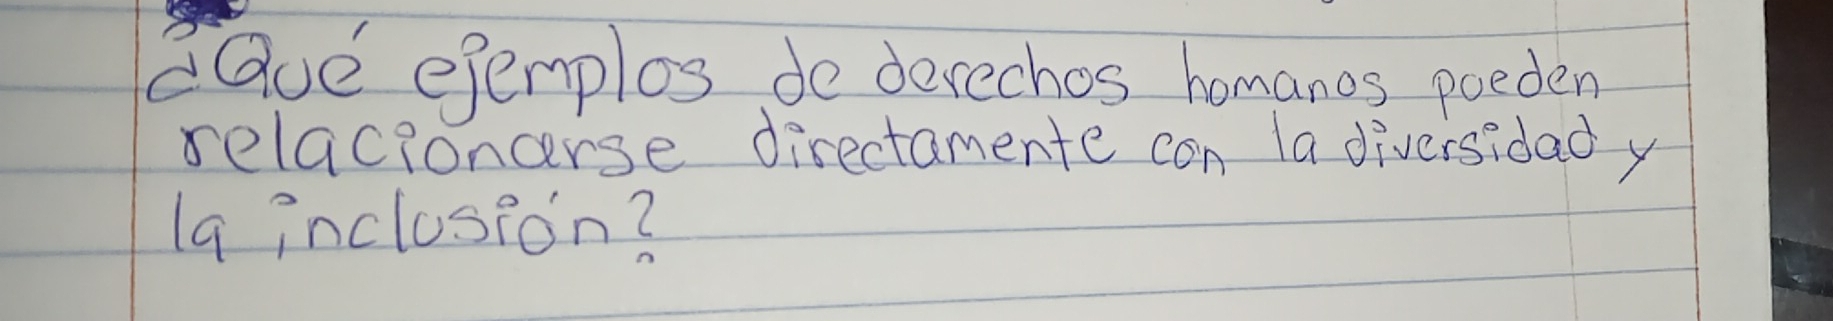 ¿Qué ejemplos de derechos homanos poeden
relacionarse directamente con la diversidad y
la inclusión?